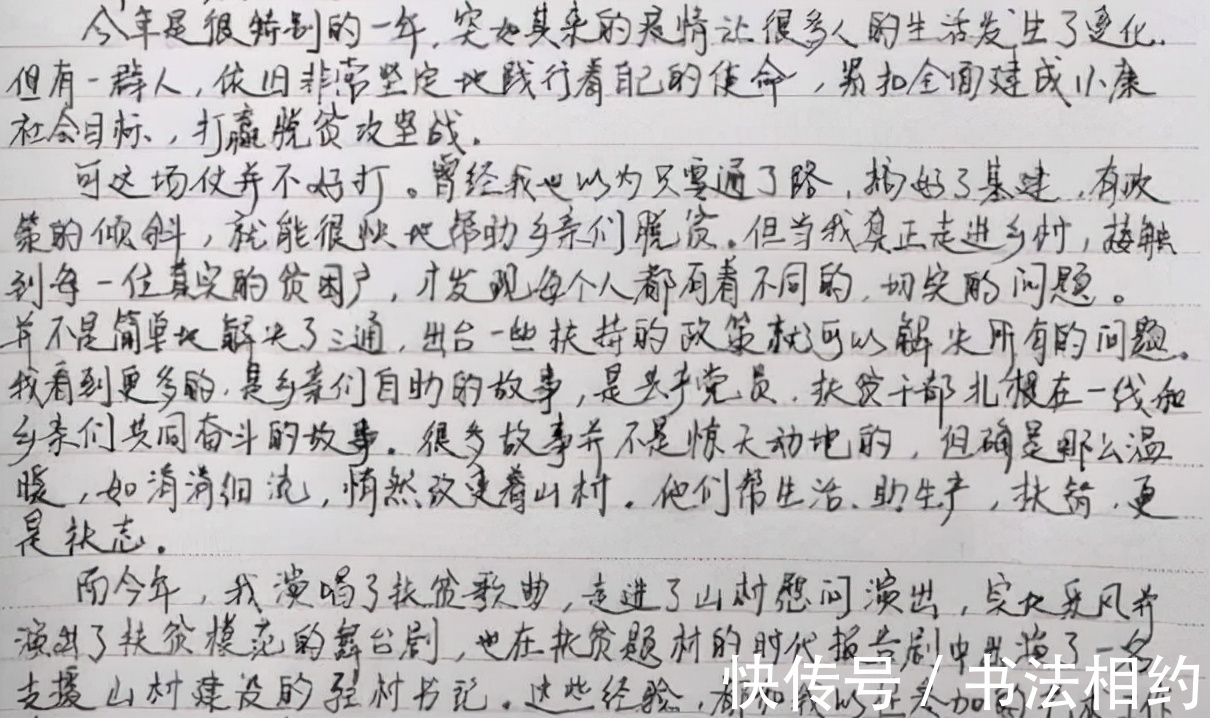 今年是很特别的一年,突如其来的疫情让很多人的生活发生了变化.
但有一群人,依旧非常坚定地践行着自己的使命,紧扣全面建成小康
社会目标、打赢脱贫攻坚战.
可这场仗并不好打。曾经我也以为只要通了路,搞好了基建,有政
策的倾斜,就能很快地帮助乡亲们脱贫。但当我真正走进乡村,接触
到每一位真实的贫困户,才发现每个人都有着不同的,切实的问题。
并不是简单地解决了三通,出台一些扶持的政策就可以解决所有的问题。
我看到更多的,是乡亲们自助的故事,是共产党员、扶贫干部扎根在一线和
乡亲们共同奋斗的故事。很多故事并不是惊天动地的,但确是那么温
暖,如涓涓细流,悄然改变着山村。他们帮生活、助生产,扶贫,更
是扶志。
而今年,我演唱了扶贫歌曲,走进了山村慰问演出,实地采风并
演出了扶贫模范的舞台剧,也在扶贫题材的时代报告剧中出演了一名
支援山村建设的驻村书记。这些经验,都
快传号/书法相约